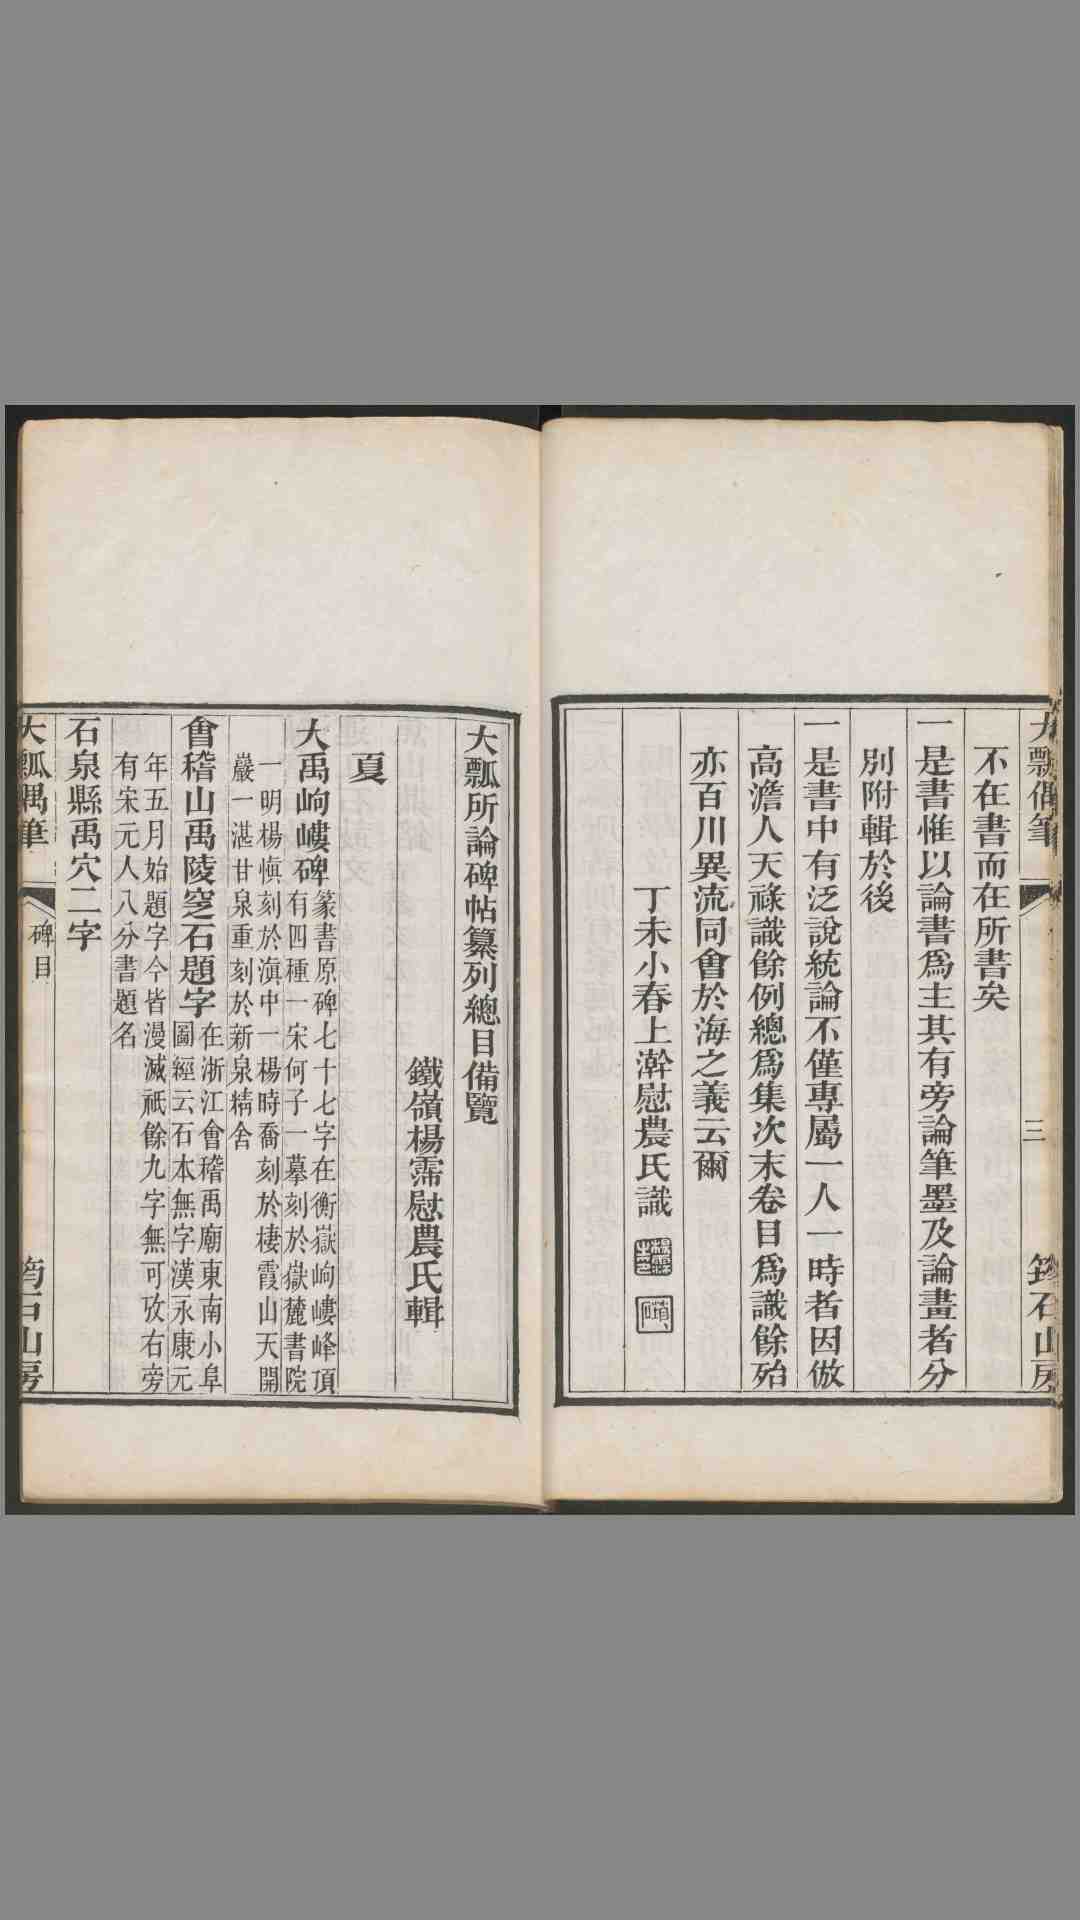 大瓢偶筆
三
筠石山房
不在書而在所書矣
一是書惟以論書爲主其有旁論筆墨及論畫者分
別附輯於後
一是書中有泛說統論不僅專屬一人一時者因倣
高澹人天祿識餘例總爲集次末卷目爲識餘殆
亦百川異流同會於海之義云爾
丁未小春上澣慰農氏識
大瓢所論碑帖纂列總目備覽
鐵嶺楊霈慰農氏輯
夏
大禹岣嶁碑
篆書原碑七十七字在衡嶽岣嶁峰頂
有四種一宋何子一摹刻於嶽麓書院
一明楊愼刻於滇中一楊時喬刻於棲霞山天開
巖一湛甘泉重刻於新泉精舍
會稽山禹陵窆石題字
在浙江會稽禹廟東南小阜
圖經云石本無字漢永康元
年五月始題字今皆漫滅祇餘九字無可攷右旁
有宋元人八分書題名
石泉縣禹穴二字
大瓢偶筆
碑目
筠石山房